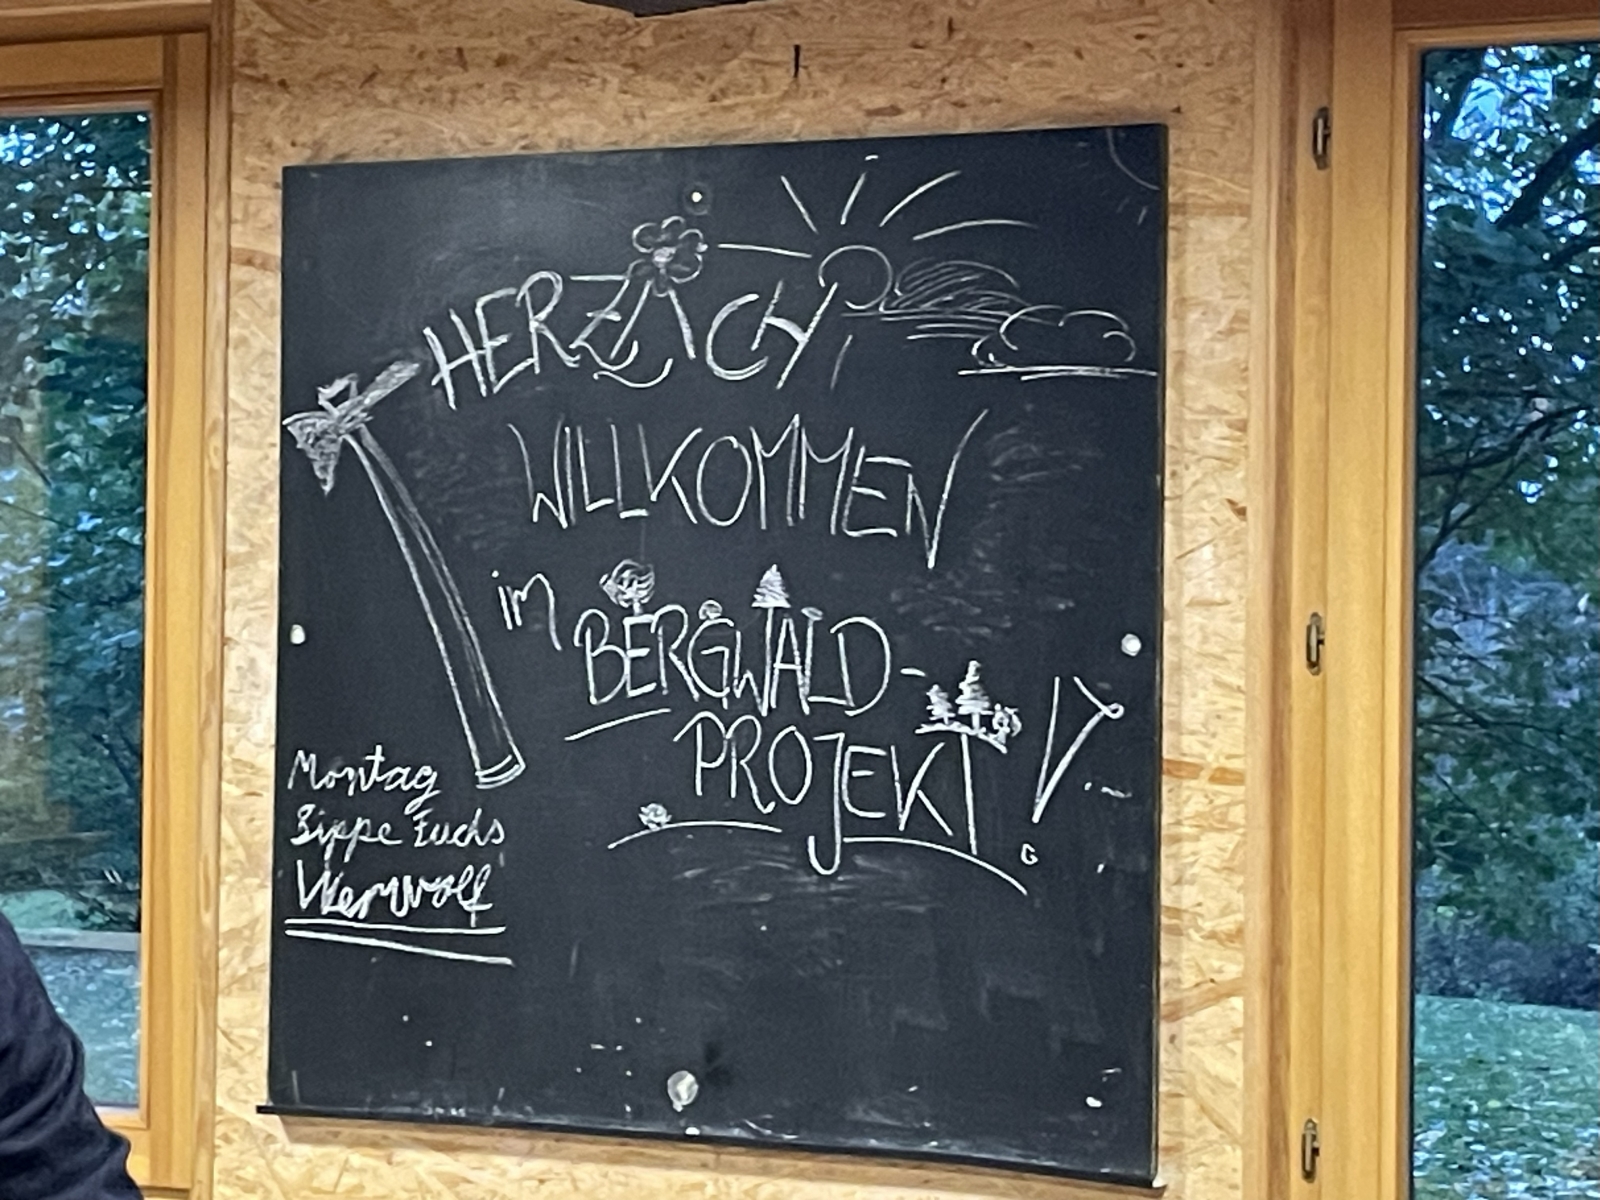 HERZLICH
WILLKOMMEN
im
BERGWALD-
PROJEKT!
Montag
Sippe Fuchs
Werwolf